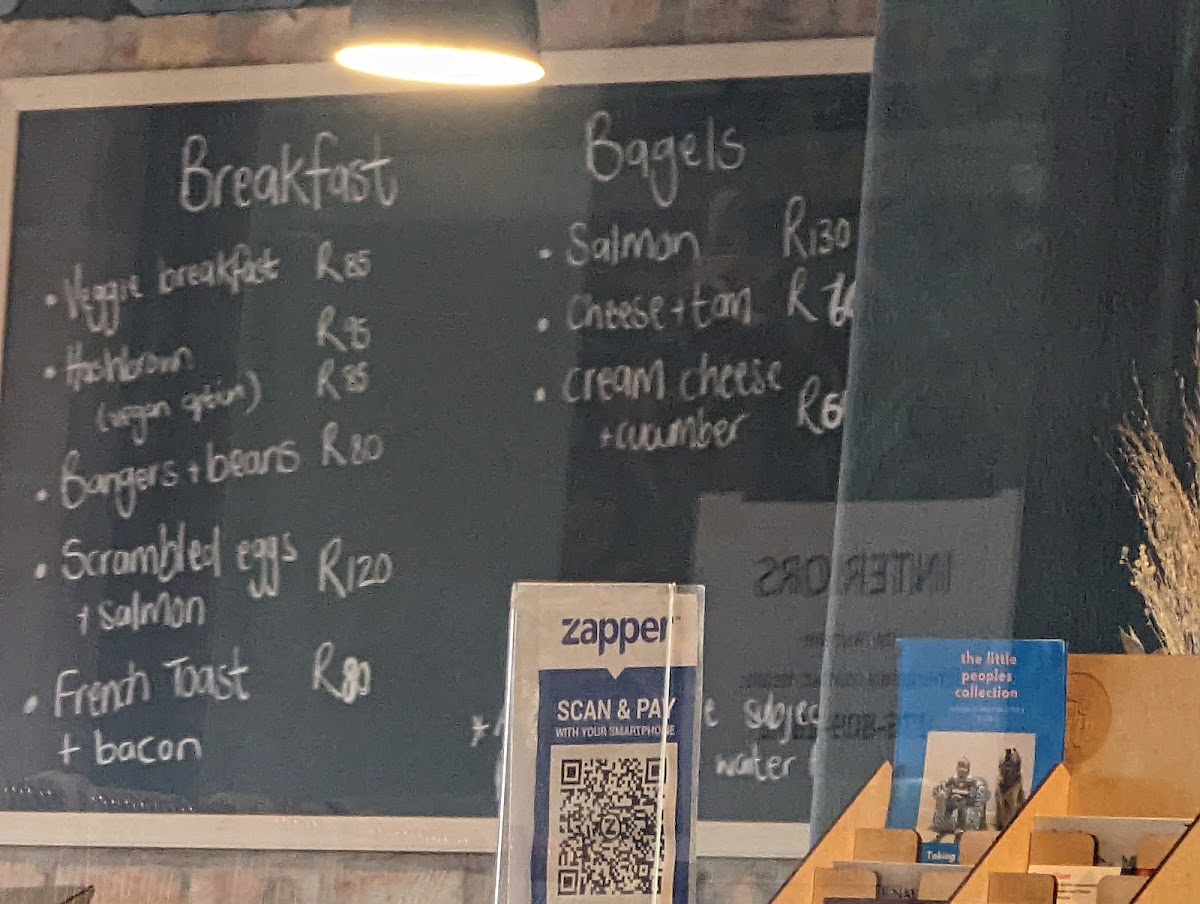 Breakfast
• Veggie breakfast R85
• Hashbrown R95
(vegan option) R85
• Bangers + beans R80
• Scrambled eggs R120
+ salmon
• French Toast R80
+ bacon
Bagels
• Salmon R130
• Cheese + tom
• Cream cheese
+ cucumber
subjec
waiter
zapper
SCAN & PAY
WITH YOUR SMARTPHONE
INTERIORS
the little
peoples
collection
Taking